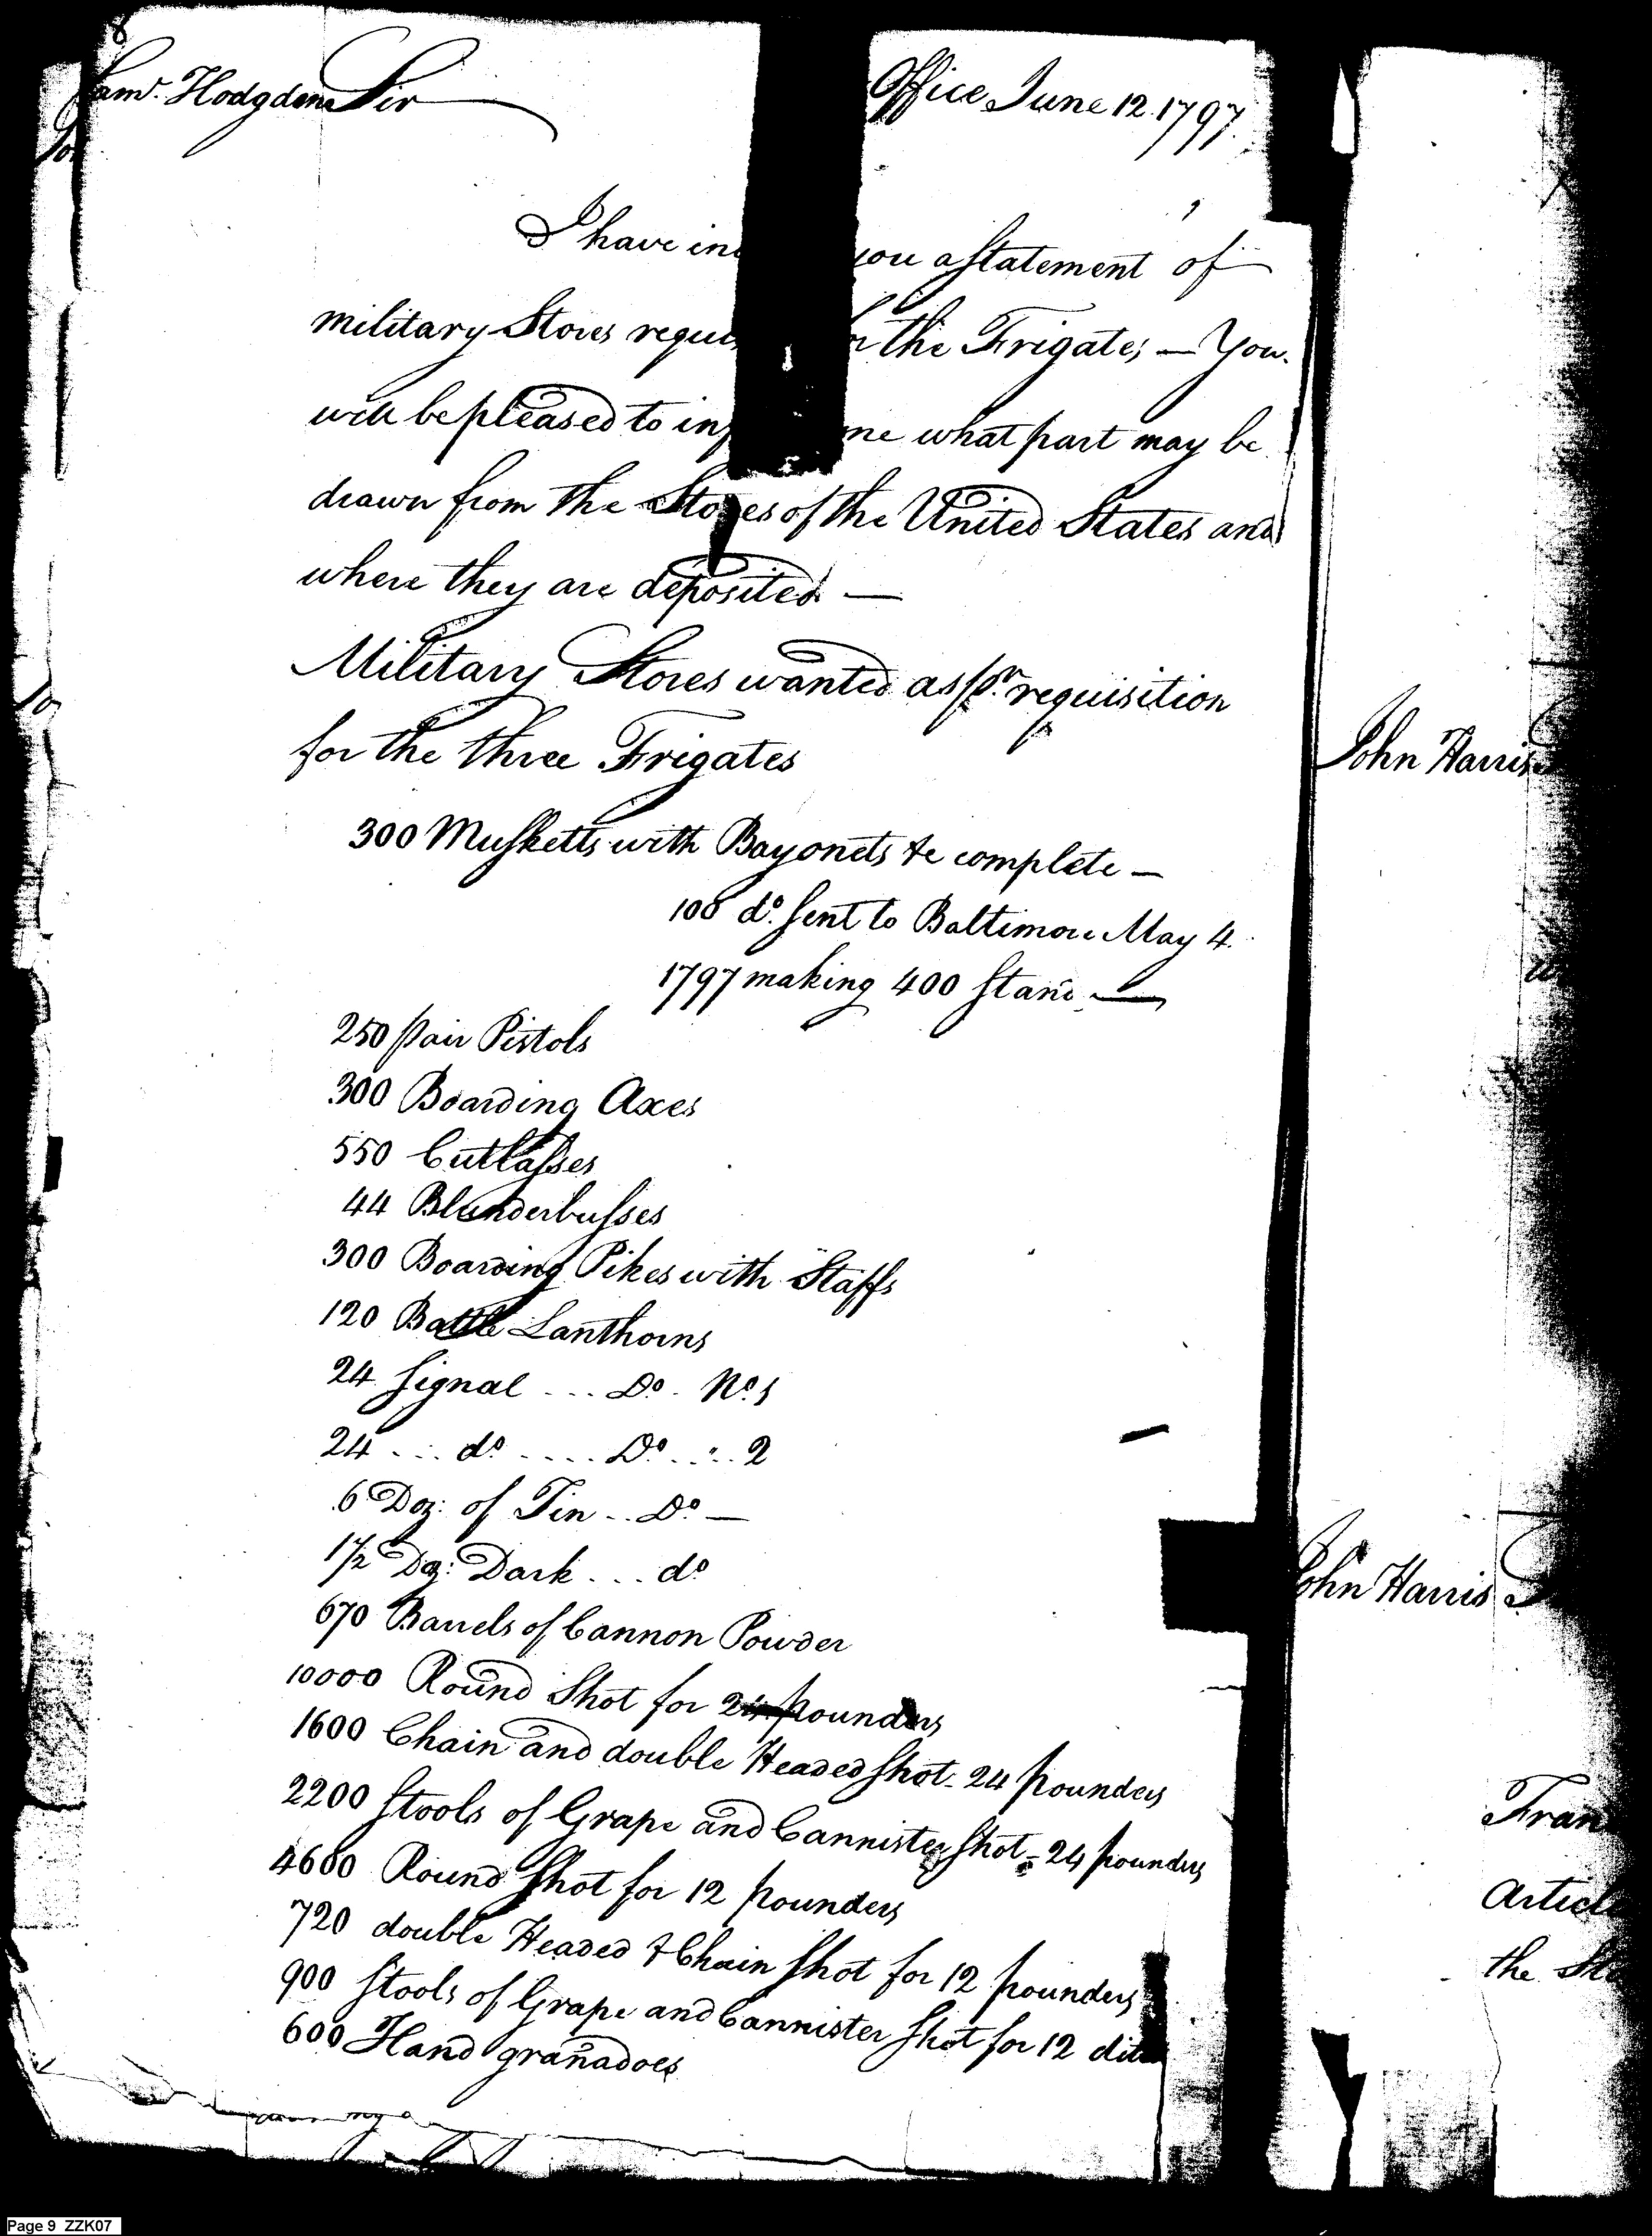 8
Saml. Hodgdon Sir Office June 12. 1797.
I have you a Statement of
military Stores the Frigates — You
will be pleased to me what part may be
drawn from the Stores of the United States and
where they are deposited —
Military Stores wanted as pr. requisition
for the three Frigates
300 Musketts with Bayonets &c complete —
100 do. sent to Baltimore May 4.
1797 making 400 Stand —
250 pair Pistols
300 Boarding Axes
550 Cutlasses
44 Blunderbusses
300 Boarding Pikes with Staffs
120 Battle Lanthorns
24 Signal ... Do. No. 1
24 ... do ..... Do ... 2
6 Doz: of Tin .. Do —
1½ Doz: Dark ... do
670 Barrels of Cannon Powder
10000 Round Shot for 24 pounders
1600 Chain and double Headed Shot - 24 pounders
2200 Stools of Grape and Cannister Shot - 24 pounders
4600 Round Shot for 12 pounders
720 double Headed & Chain Shot for 12 pounders
900 Stools of Grape and Cannister Shot for 12 ditto
600 Hand granadoes
John Harris
John Harris
Fran
Article
the
Page 9 ZZK07